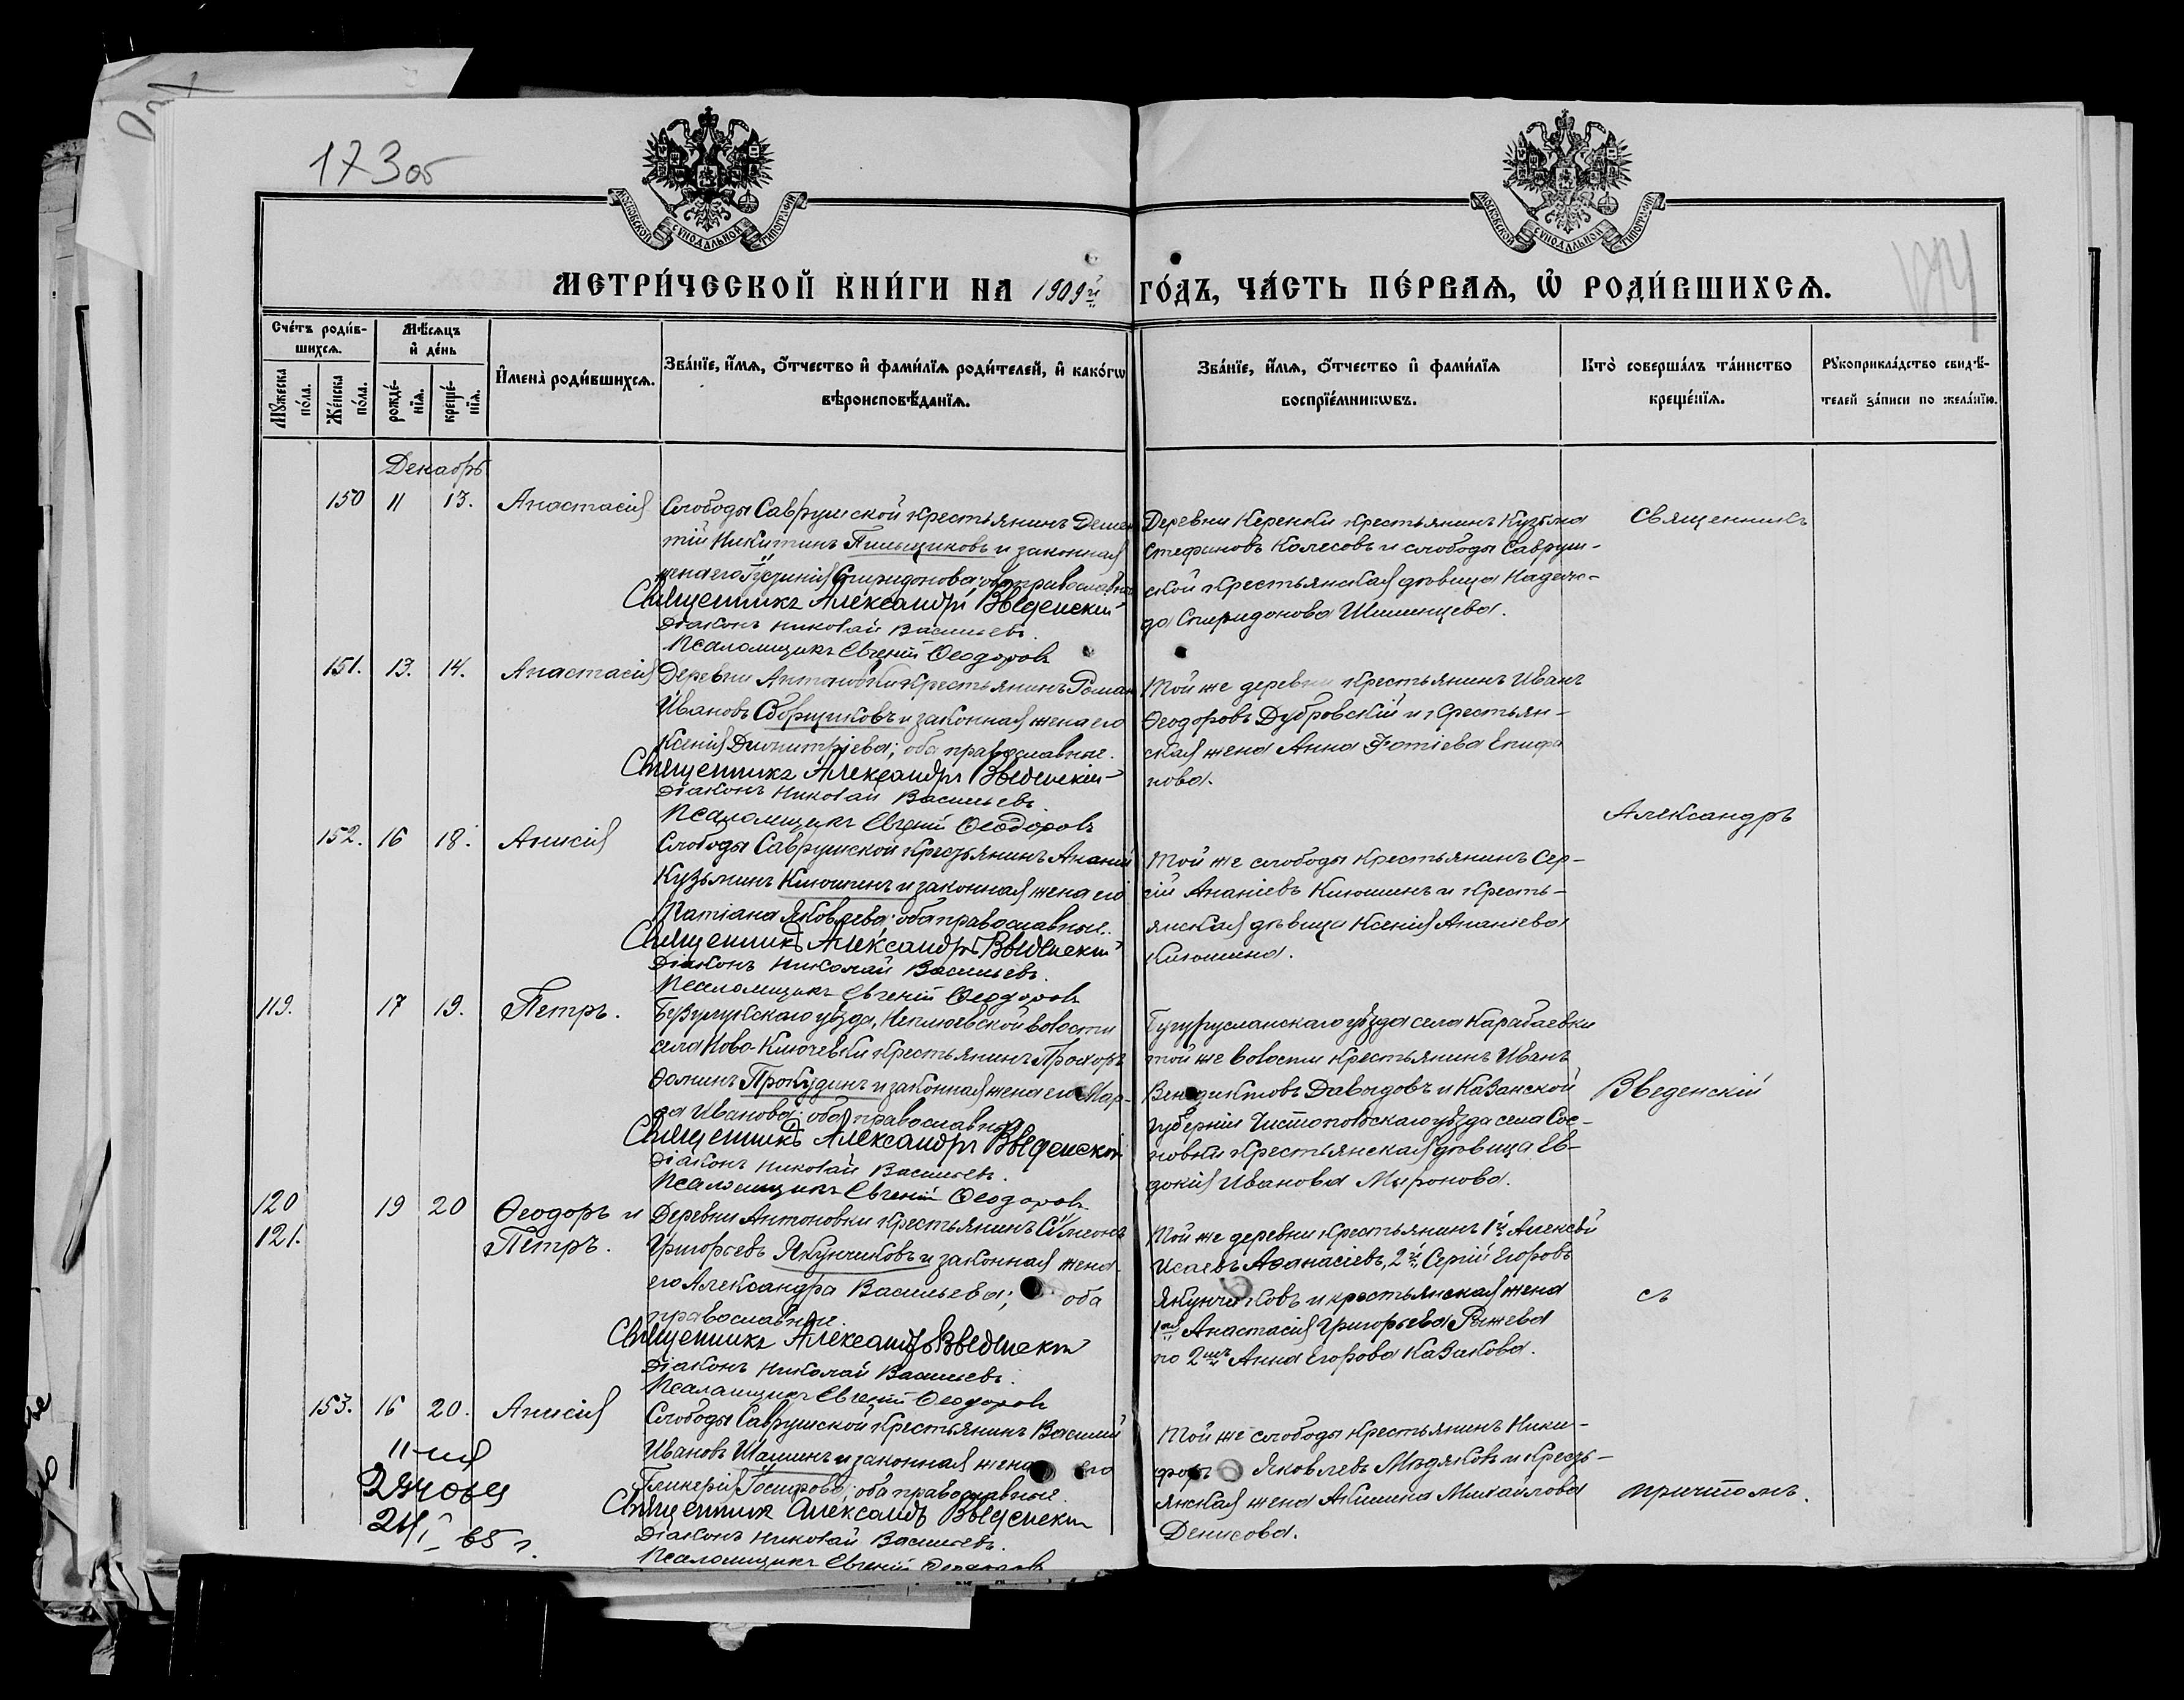 173об
174
МОСКОВСКОЙ СѴНОДАЛЬНОЙ ТИПОГРАФІИ
МОСКОВСКОЙ СѴНОДАЛЬНОЙ ТИПОГРАФІИ
МЕТРИ́ЧЕСКОЙ КНИ́ГИ НА 1909й ГО́ДЪ, ЧА́СТЬ ПЕ́РВАѦ, Ѡ҆ РОДИ́ВШИХСѦ.
Сче́тъ роди́в-
шихсѧ.
Мѣ́сѧцъ
и҆ де́нь
Мꙋ́жеска по́ла.
Же́нска по́ла.
рожде́-
нїѧ.
креще́-
нїѧ.
И҆мена̀ роди́вшихсѧ.
Зва́нїе, и҆́мѧ, ѻ҆́тчество и҆ фами́лїѧ роди́телей, и҆ како́гѡ
вѣроисповѣ́данїѧ.
Зва́нїе, и҆́мѧ, ѻ҆́тчество и҆ фами́лїѧ
воспрїе́мникѡвъ.
Кто̀ соверша́лъ та́инство
креще́нїѧ.
Рꙋкоприкла́дство свидѣ́-
телей за́писи по жела́нїю.
Декабрь
150 11 13. Анастасія
Слободы Саврушской крестьянинъ Демен
тій Никитинъ Пильщиковъ и законная
жена его Спиридонова; оба православные
Священникъ Александръ Введенскій
Діаконъ Николай Васильевъ.
Псаломщикъ Евгеній Ѳеодоровъ
Деревни Керенки крестьянинъ Кузьма
Стефановъ Колесовъ и слободы Савруш-
ской крестьянская дѣвица Надеж-
да Спиридонова Шишенцева.
Священникъ
151. 13. 14. Анастасія
Деревни Антоновки крестьянинъ Роман
Ивановъ Сборщиковъ и законная жена его
Ксенія Димитріева; оба православные.
Священникъ Александръ Введенскій
Діаконъ Николай Васильевъ.
Псаломщикъ Евгеній Ѳеодоровъ
Той же деревни крестьянинъ Иванъ
Ѳеодоровъ Дубровскій и крестьян-
ская жена Анна Фотіева Епифа
нова.
Александръ
152. 16 18. Анисія
Слободы Саврушской крестьянинъ Ананій
Кузьминъ Клюшинъ и законная жена его
Татіана Яковлева; оба православные.
Священникъ Александръ Введенскій
Діаконъ Николай Васильевъ.
Псаломщикъ Евгеній Ѳеодоровъ
Той же слободы крестьянинъ Сер-
гій Ананіевъ Клюшинъ и кресть-
янская дѣвица Ксенія Ананіева
Клюшина.
119. 17 19. Петръ.
Бузулукскаго уѣзда, Неплюевской волости
села Ново-Ключевки крестьянинъ Прохоръ
Ѳоминъ Прокудинъ и законная жена его Мар-
ѳа Иванова; оба православные
Священникъ Александръ Введенскій
Діаконъ Николай Васильевъ.
Псаломщикъ Евгеній Ѳеодоровъ
Бугурусланскаго уѣзда села Карабаевки
той же волости крестьянинъ Иванъ
Венедиктовъ Давыдовъ и Казанской
губерніи Чистопольскаго уѣзда села Сос-
новки крестьянская дѣвица Ев-
докія Иванова Миронова.
Введенскій
120 19 20 Ѳеодоръ и
121. Петръ.
Деревни Антоновки крестьянинъ Сѵмеонъ
Григорьевъ Якунчиковъ и законная жена
его Александра Васильева; оба
православные.
Священникъ Александръ Введенскій
Діаконъ Николай Васильевъ.
Псаломщикъ Евгеній Ѳеодоровъ
Той же деревни крестьянинъ 1й Алексѣй
Исаевъ Аѳанасіевъ, 2й Сергій Егоровъ
Якунчиковъ и крестьянская жена
1ая Анастасія Григорьева Рыжева
по 2мъ Анна Егорова Казакова.
съ
153. 16 20. Анисія
Слободы Саврушской крестьянинъ Василій
Ивановъ Шашинъ и законная жена его
Гликерія; оба православные.
Священникъ Александръ Введенскій
Діаконъ Николай Васильевъ.
Псаломщикъ Евгеній Ѳеодоровъ
Той же слободы крестьянинъ Ники-
форъ Яковлевъ Мѣдяковъ и кресть-
янская жена Акилина Михайлова
Денисова.
причтомъ.